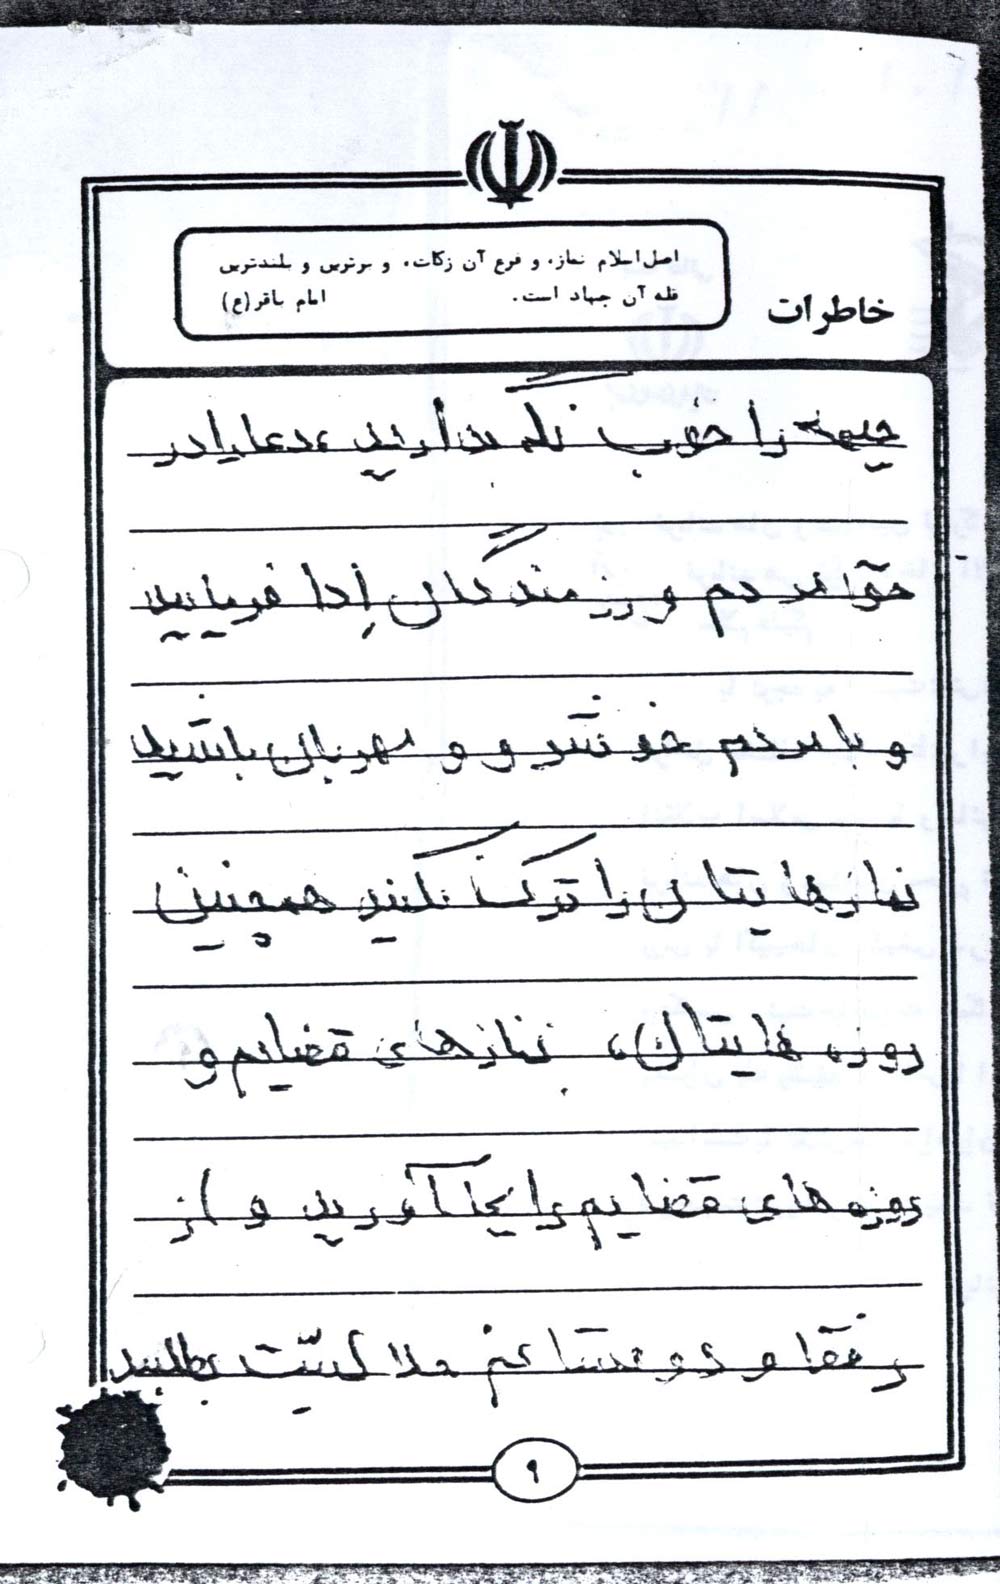 اصل اسلام نماز، و فرع آن زکات، و برترین و بلندترین
قله آن جهاد است. امام باقر(ع)
خاطرات
جبهه را خوب نگه بدارید، دعا یادر
حق مردم و رزمندگان ادا فرمایید
و با مردم خوشرو و مهربان باشید
نمازهایتان را ترک نکنید همچنین
روزه هایتان، نمازهای قضایم و
روزه های قضایم را بجا آورید و از
رفقا و دوستانم حلالیت بطلبید
۹